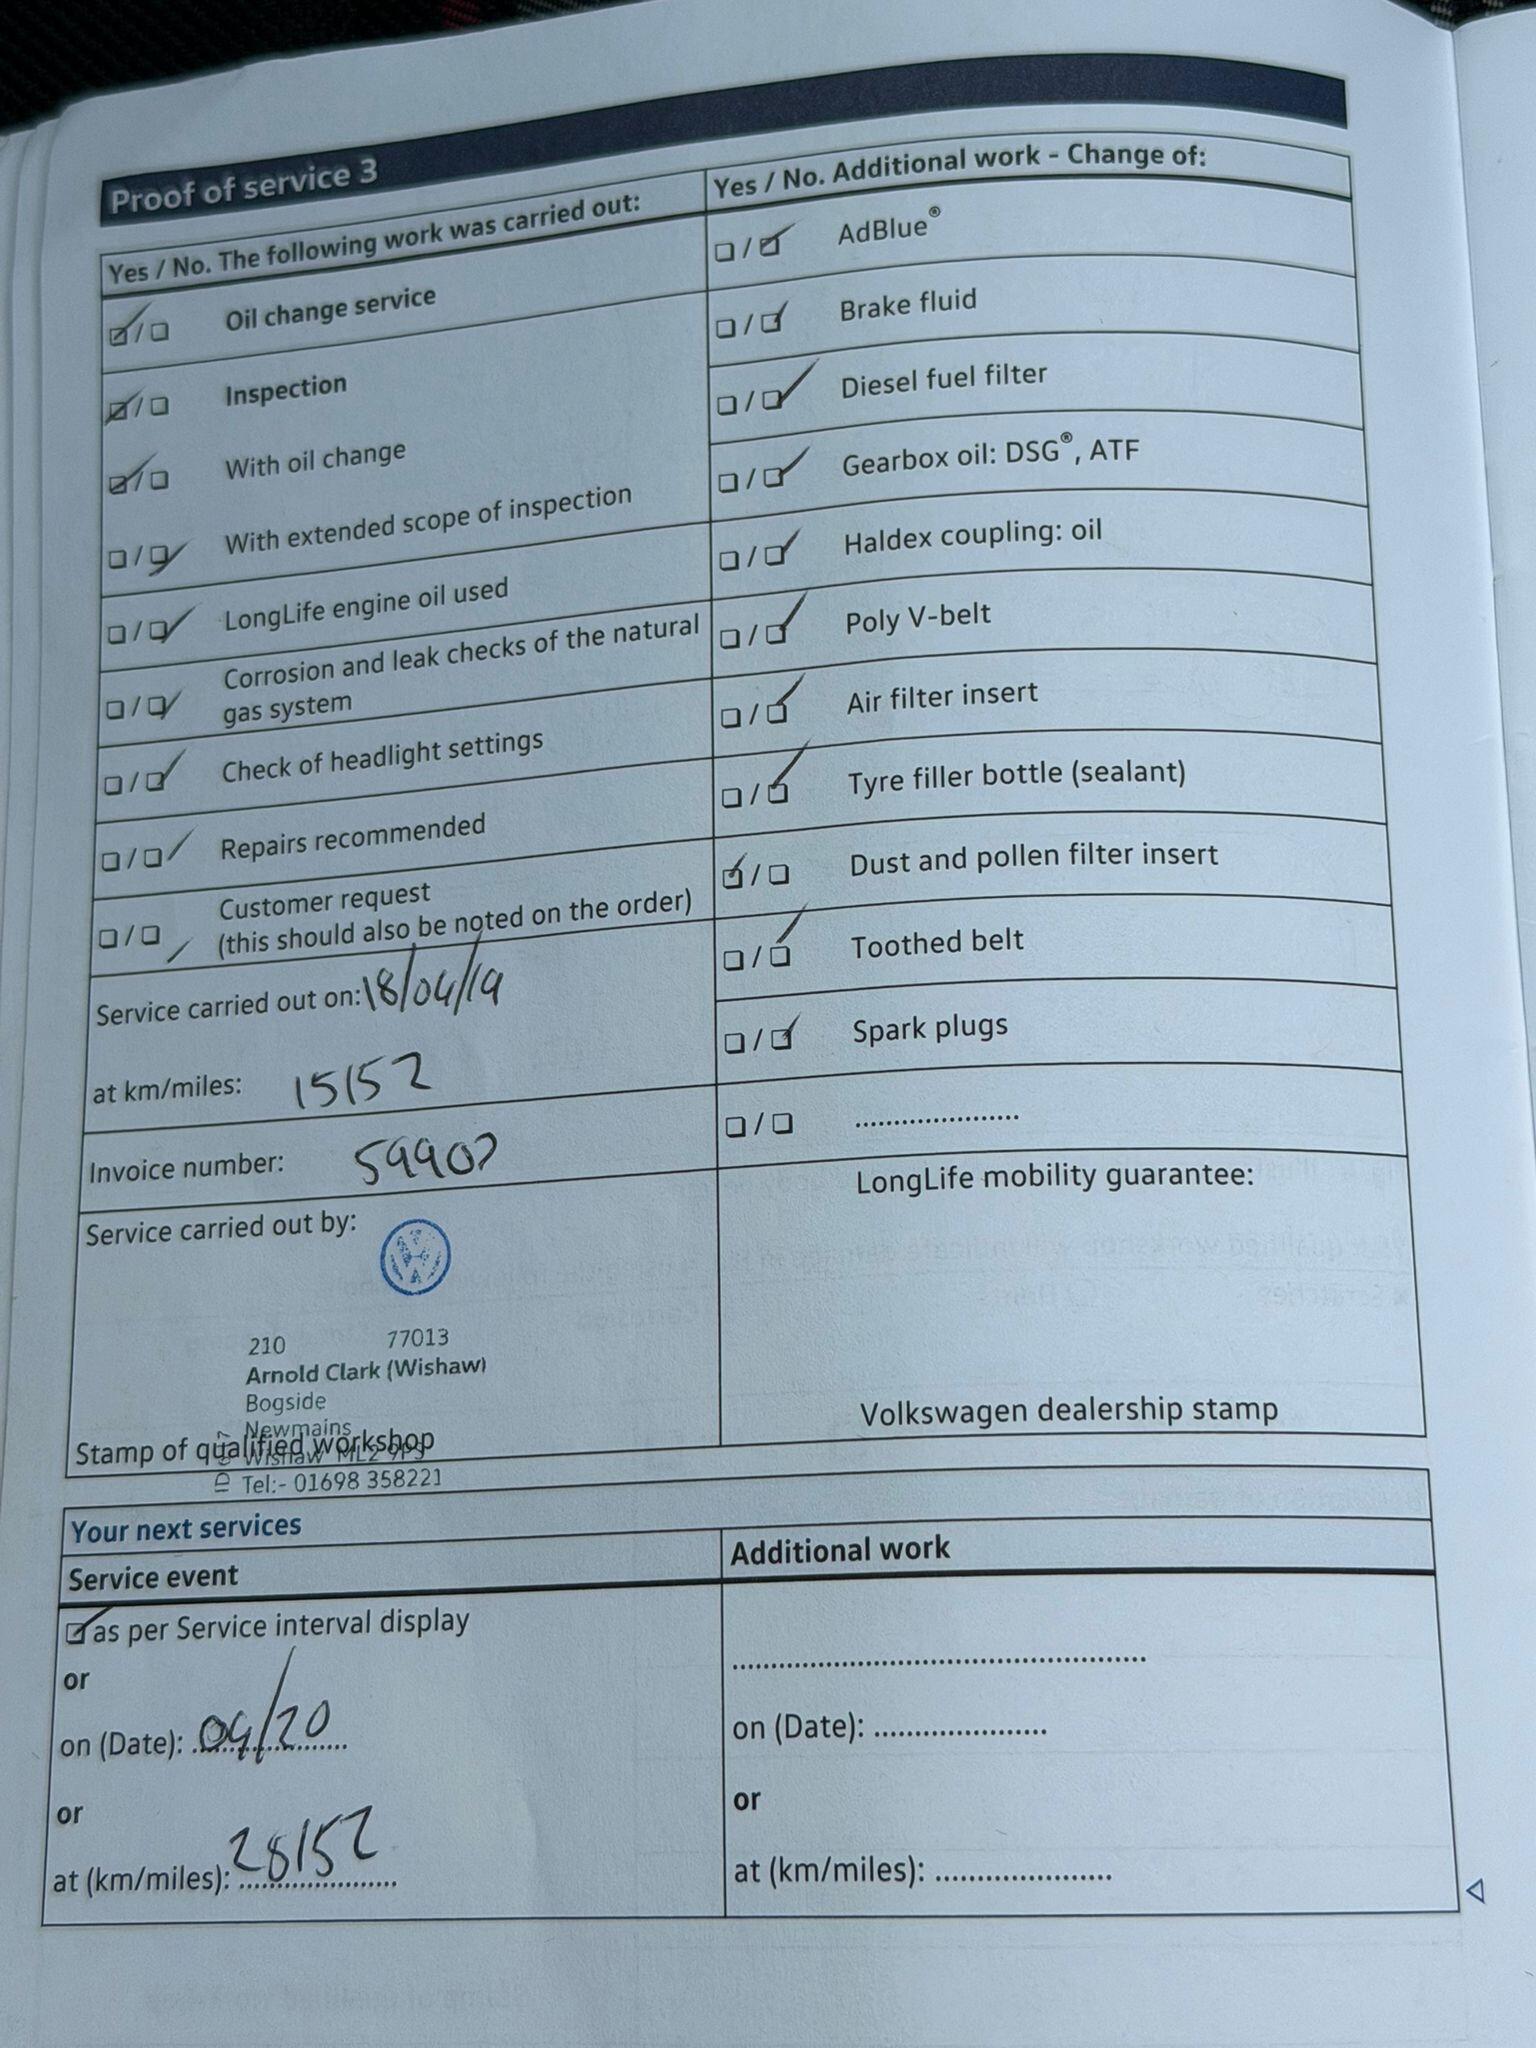 Proof of service 3
Yes / No. The following work was carried out:
☑ / ☐ Oil change service
☑ / ☐ Inspection
☑ / ☐ With oil change
☐ / ☑ With extended scope of inspection
☐ / ☑ LongLife engine oil used
☐ / ☑ Corrosion and leak checks of the natural
gas system
☐ / ☑ Check of headlight settings
☐ / ☑ Repairs recommended
☐ / ☑ Customer request
(this should also be noted on the order)
Service carried out on: 18/04/19
at km/miles: 15152
Invoice number: 59907
Service carried out by:
210 77013
Arnold Clark (Wishaw)
Bogside
Newmains
Wishaw ML2 9PS
Stamp of qualified workshop
Tel:- 01698 358221
Yes / No. Additional work - Change of:
☐ / ☑ AdBlue®
☐ / ☑ Brake fluid
☐ / ☑ Diesel fuel filter
☐ / ☑ Gearbox oil: DSG®, ATF
☐ / ☑ Haldex coupling: oil
☐ / ☑ Poly V-belt
☐ / ☑ Air filter insert
☐ / ☑ Tyre filler bottle (sealant)
☑ / ☐ Dust and pollen filter insert
☐ / ☑ Toothed belt
☐ / ☑ Spark plugs
☐ / ☐ ....................
LongLife mobility guarantee:
Volkswagen dealership stamp
Your next services
Service event
☑ as per Service interval display
or
on (Date): 04/20
or
at (km/miles): 28152
Additional work
..................................................
on (Date): .....................
or
at (km/miles): .....................